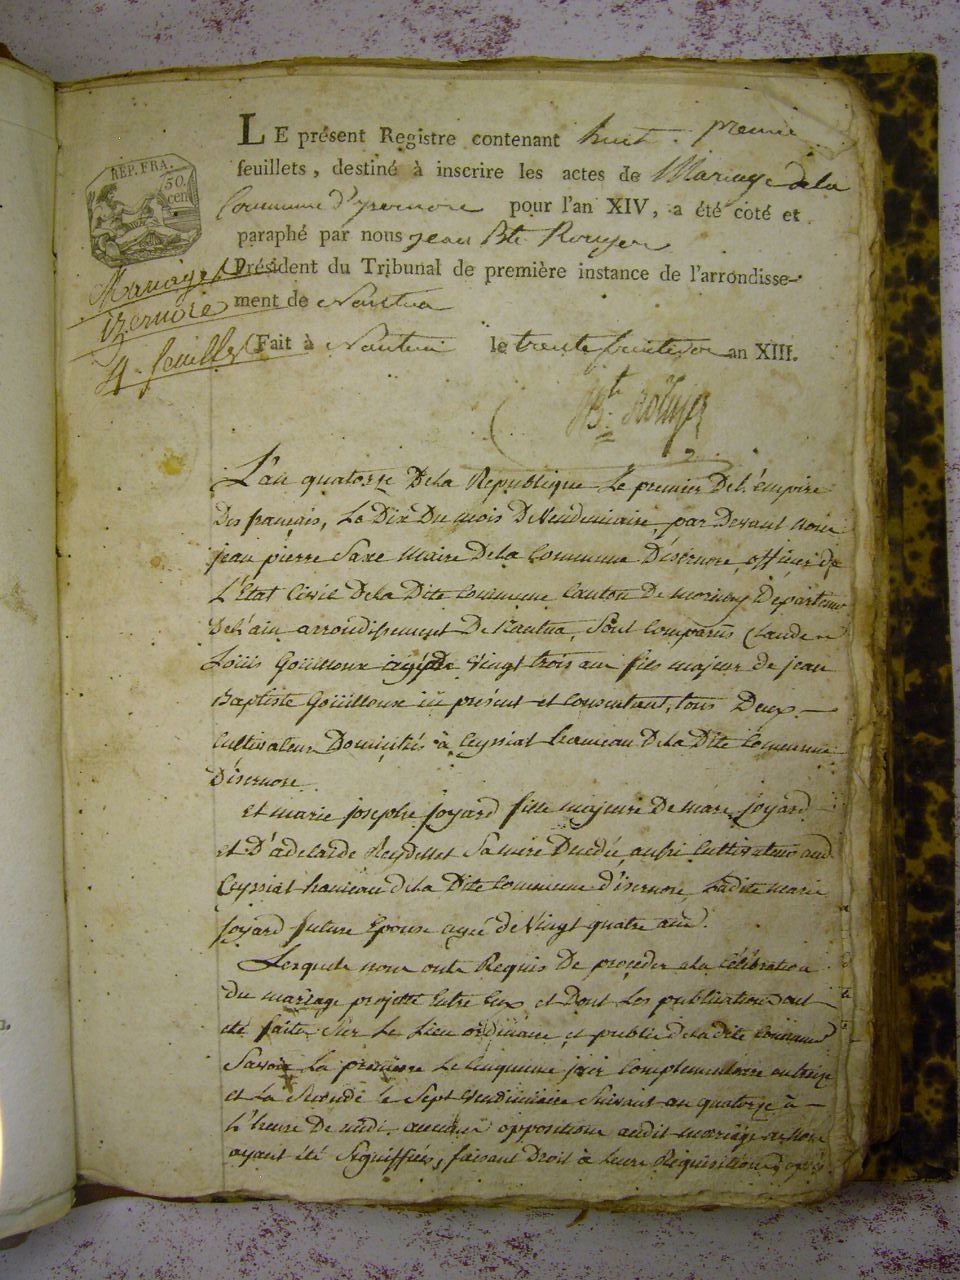 LE présent Registre contenant huit premier
feuillets, destiné à inscrire les actes de Mariage de la
Commune d'yzernore pour l'an XIV, a été coté et
paraphé par nous jean Bte Rouyer
Président du Tribunal de première instance de l'arrondisse-
ment de Nantua
Fait à Nantua le trente fructidor an XIII.
REP. FRA.
50.
cen
Mariages
izernore
4 feuilles
Bte Rouyer
L'an quatorze De La Republique Le premier De L'émpire
Des français, Le Dix Du mois De Vendemiaire, par Devant nous
jean pierre Saxe maire De la Commune D'isernore, officier de
L'État Civil De La Dite Commune Canton De Departem
De L'ain arrondissement De Nantua, Sont Comparus Claude
Loüis Goüilloux agé de Vingt trois ans fils majeur de jean
Baptiste Goüilloux ici présent et Consentant, tous Deux
Cultivateurs Domiciliés à Ceyssiat hameau De La Dite Commune
D'isernore.
et marie josephe joyard fille majeure De marc joyard
et D'adelaïde Reydellet Sa mère Decedée, aussi Cultivateurs aud
Ceyssiat hameau De La Dite Commune D'isernore, Ladite marie
joyard future Epouse agée De Vingt quatre ans.
Lesquels nous onts Requis De proceder a La célébration
Du mariage projetté Entre Eux et Dont Les publications ont
été faites Sur Le Lieu ordinaire et public De La dite Commune
Savoir La première Le Cinquieme jour Complementaire an treize
et La Seconde le Sept Vendémiaire Suivant an quatorze à
L'heure De midi, aucune opposition audit mariage
ayant été Signiffiés, faisant Droit à Leurs Réquisitions,